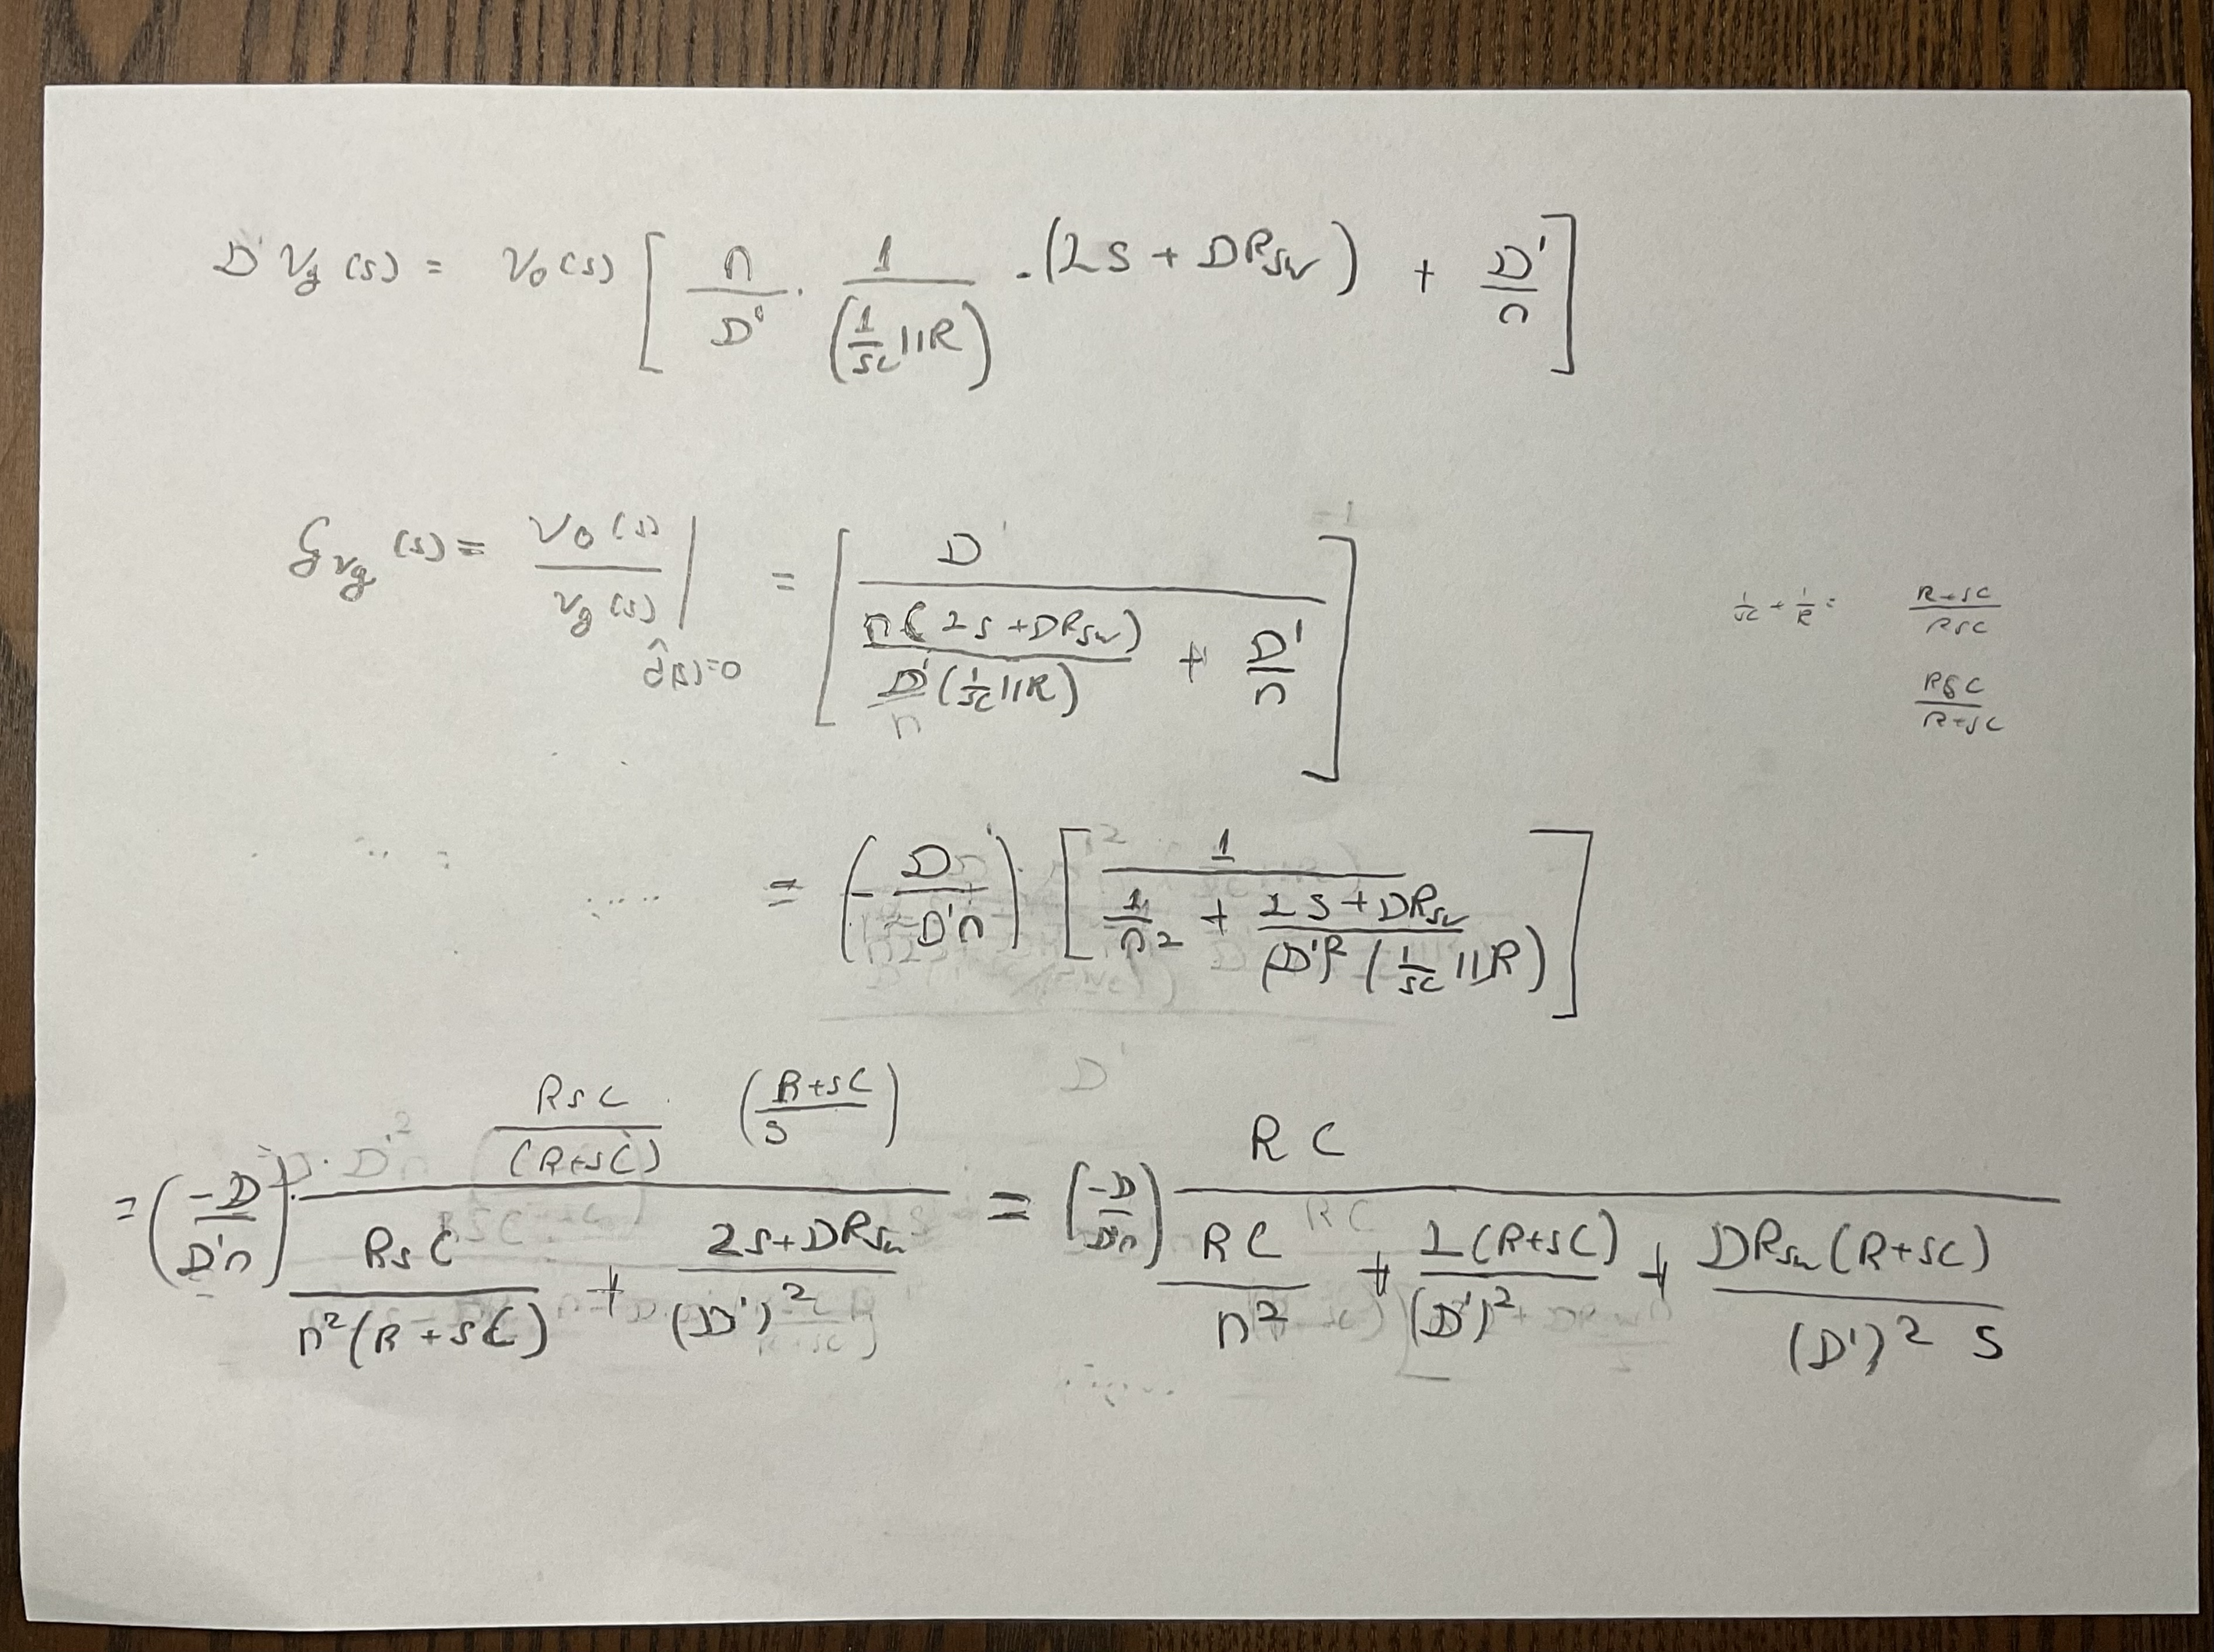 D' v_g(s) = v_o(s) [ n/D' · 1/(1/sC || R) · (Ls + DR_sw) + D'/n ]
G_vg(s) = v_o(s)/v_g(s) |_{d̂(s)=0} = [ D' / ( n(Ls + DR_sw) / (D'(1/sC || R)) + D'/n ) ]
1/sC + 1/R = (R+sC)/(RsC)
RsC/(R+sC)
= (-D/(D'n)) · [ 1 / ( 1/n² + (Ls + DR_sw)/((D')² (1/sC || R)) ) ]
= (-D/(D'n)) · ( RsC/(R+sC) ((R+sC)/s) ) / ( RsC/(n²(R+sC)) + (Ls + DR_sw)/(D')² ) = (-D/(D'n)) RC / ( RC/n² + L(R+sC)/(D')² + DR_sw(R+sC)/((D')² s) )